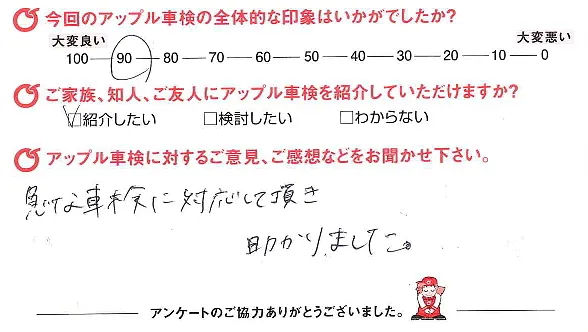 今回のアップル車検の全体的な印象はいかがでしたか?
大変良い 大変悪い
100 — 90 — 80 — 70 — 60 — 50 — 40 — 30 — 20 — 10 — 0
ご家族、知人、ご友人にアップル車検を紹介していただけますか?
□紹介したい □検討したい □わからない
アップル車検に対するご意見、ご感想などをお聞かせ下さい。
急な車検に対応して頂き
助かりました。
アンケートのご協力ありがとうございました。